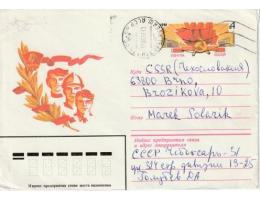 4
Куда ČSSR (Чехословакия)
63800 Brno,
Brožíkova, 10
Кому Marek Polařík
Индекс предприятия связи
и адрес отправителя
СССР Чебоксары-31
ул 324 стр. дивизии 19-25
Голубев ДА
Индекс предприятия связи места назначения